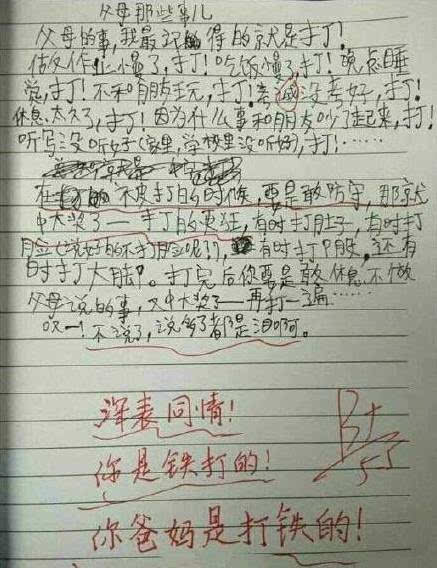 父母那些事儿
父母的事,我最记得的就是打!
做作业慢了,打!吃饭慢了,打!晚点睡
觉,打!不和朋友玩,打!考试没考好,打!
休息太久了,打!因为什么事和朋友吵了起来,打!
听写没听好(家里,学校里没听好),打!……
在被打的时候,要是敢防守,那就
中大奖了——打的更狂,有时打肚子,有时打
脸(说好的不打脸呢?!),有时打腿,还有
时打大腿。打完后你要是敢休息不做
父母说的事,又中大奖了——再打一遍……
哎!不说了,说多了都是泪啊。
B+
深表同情!
你是铁打的!
你爸妈是打铁的!